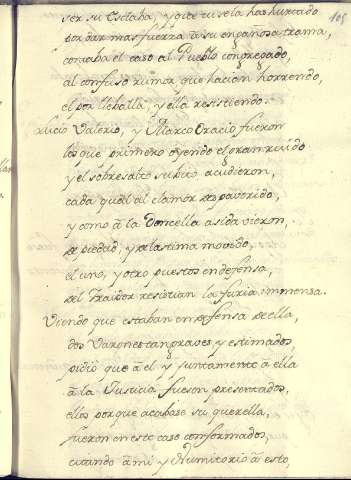 105
ser su Esclaba, y que tu se la has hurtado
por dar mas fuerza â su engañosa trama,
contaba el caso al Pueblo congregado,
al confuso rumor que hacian horrendo,
el por lleballa, y ella resistiendo.
Lucio Valerio, y Marco Oracio fueron
los que primero oyendo el gran ruido
y el sobresalto subito acudieron,
cada qual al clamor despavorido,
y como â la Doncella asida vieron,
de piedad, y de lastima movido,
el uno, y otro puestos en defensa,
del Traidor resistian la furia immensa.
Viendo que estaban en defensa de ella,
dos Varones tan graves y estimados
pidio que â el y juntamente â ella
â la Justicia fuesen presentados,
ellos porque acabase su querella,
fueron en este caso conformados,
citando â mi y Numitorio â esto,